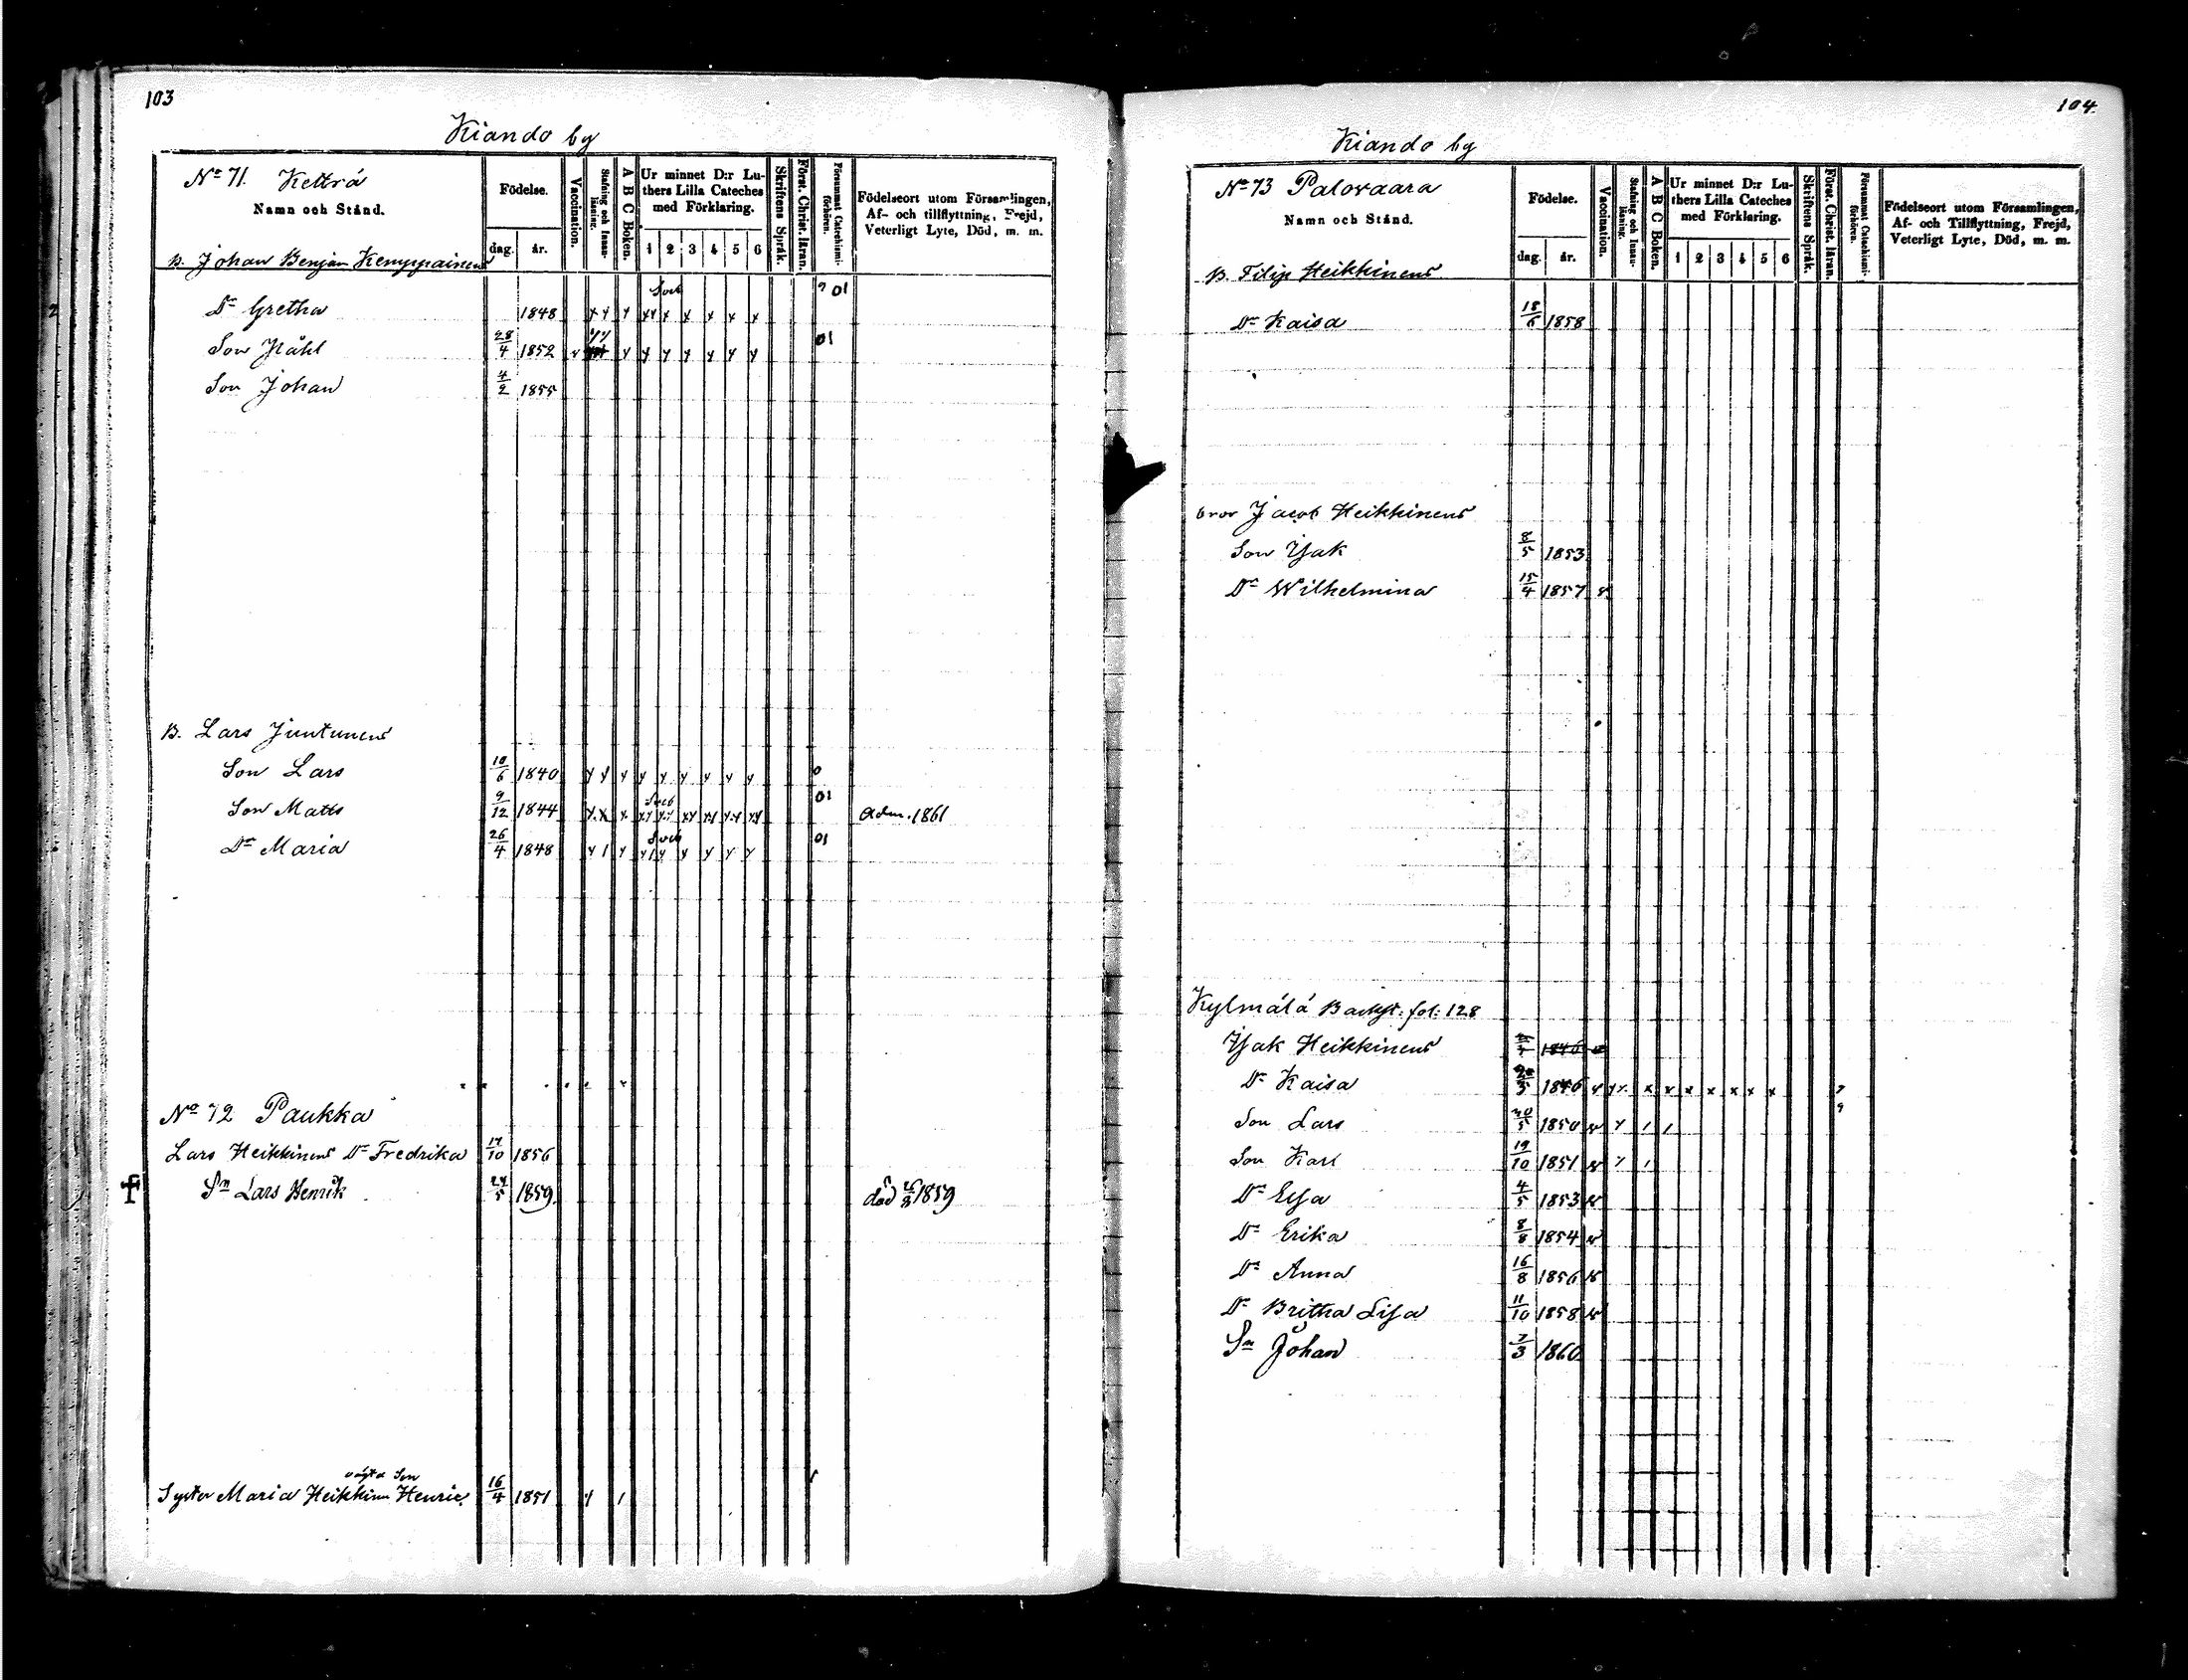 103
Kiando by
No 71. Ketträ
Namn och Stånd.
Födelse.
dag. år.
Vaccination.
Stafning och Innanläsning.
A B C Boken.
Ur minnet D:r Luthers Lilla Cateches med Förklaring.
1 2 3 4 5 6
Skriftens Språk.
Först. Christ. läran.
Försummat Catechismiförhören.
Födelseort utom Församlingen,
Af- och tillflyttning, Frejd,
Veterligt Lyte, Död, m. m.
B. Johan Benjam Kemppainens
Dr Gretha 1848 x y y xy x x x x x 9 01
Son Påhl 28/4 1852 v y y y y y y y y y 01
Son Johan 4/2 1855
B. Lars Juntunens
Son Lars 10/6 1840 y y y y y y y y y 0
Son Matts 9/12 1844 01 Adm. 1861
Dr Maria 26/4 1848 y 1 y y y y y y 01
No 72 Paukka
Lars Heikkinens Dr Fredrika 17/10 1856
† Sn Lars Henrik 24/5 1859. död 1859
oägta Son
Syster Maria Heikkinen Henric. 16/4 1851 y 1
104.
Kiando by
No 73 Palovaara
Namn och Stånd.
Födelse.
dag. år.
Vaccination.
Stafning och Innanläsning.
A B C Boken.
Ur minnet D:r Luthers Lilla Cateches med Förklaring.
1 2 3 4 5 6
Skriftens Språk.
Förest. Christ. läran.
Försummat Catechismiförhören.
Födelseort utom Församlingen,
Af- och Tillflyttning, Frejd,
Veterligt Lyte, Död, m. m.
B. Filip Heikkinens
Dr Kaisa 18/6 1858
bror Jacob Heikkinens
Son Isak 8/5 1853
Dr Wilhelmina 15/4 1857 v
Kylmälä Backst: fol: 128
Isak Heikkinens 1846
Dr Kaisa 1846 v y x x x x x x x x 9
Son Lars 30/5 1850 v y 1 1 9
Son Karl 19/10 1851 v y 1
Dr Elsa 4/5 1853 v
Dr Erika 8/8 1854 v
Dr Anna 16/8 1856 v
Dr Britha Lisa 11/10 1858 v
Sn Johan 7/3 1860